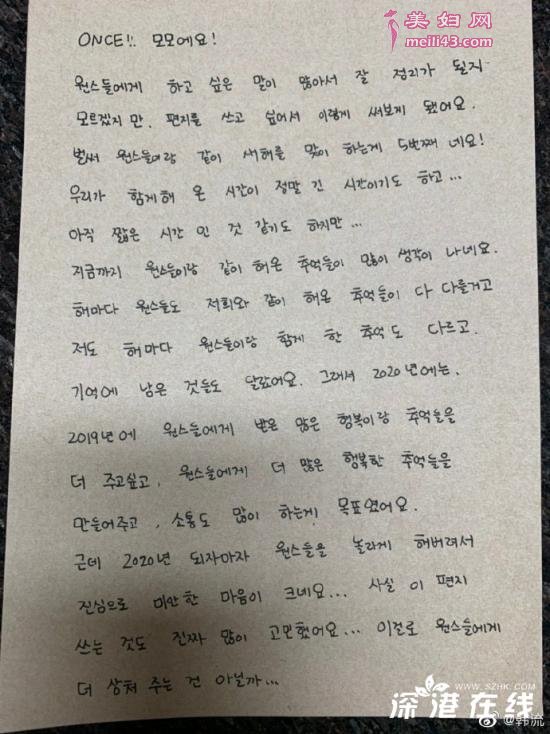 美妇网
meili43.com
ONCE!! 모모에요!
원스들에게 하고 싶은 말이 많아서 잘 정리가 될지
모르겠지만, 편지를 쓰고 싶어서 이렇게 써보게 됐어요.
벌써 원스들이랑 같이 새해를 맞이 하는게 5번째 네요!
우리가 함게해 온 시간이 정말 긴 시간이기도 하고...
아직 짧은 시간 인 것 같기도 하지만...
지금까지 원스들이랑 같이 해온 추억들이 많이 생각이 나네요.
해마다 원스들도 저희와 같이 해온 추억들이 다 다를거고
저도 해마다 원스들이랑 함게 한 추억도 다르고.
기억에 남은 것들도 달랐어요. 그래서 2020년에는.
2019년에 원스들에게 받은 많은 행복이랑 추억들을
더 주고싶고, 원스들에게 더 많은 행복한 추억들을
만들어주고, 소통도 많이 하는게 목표였어요.
근데 2020년 되자마자 원스들을 놀라게 해버려서
진심으로 미안한 마음이 크네요... 사실 이 편지
쓰는 것도 진짜 많이 고민했어요... 이걸로 원스들에게
더 상처 주는 건 아닐까...
WWW.SZHK.COM
深港在线
@韩流